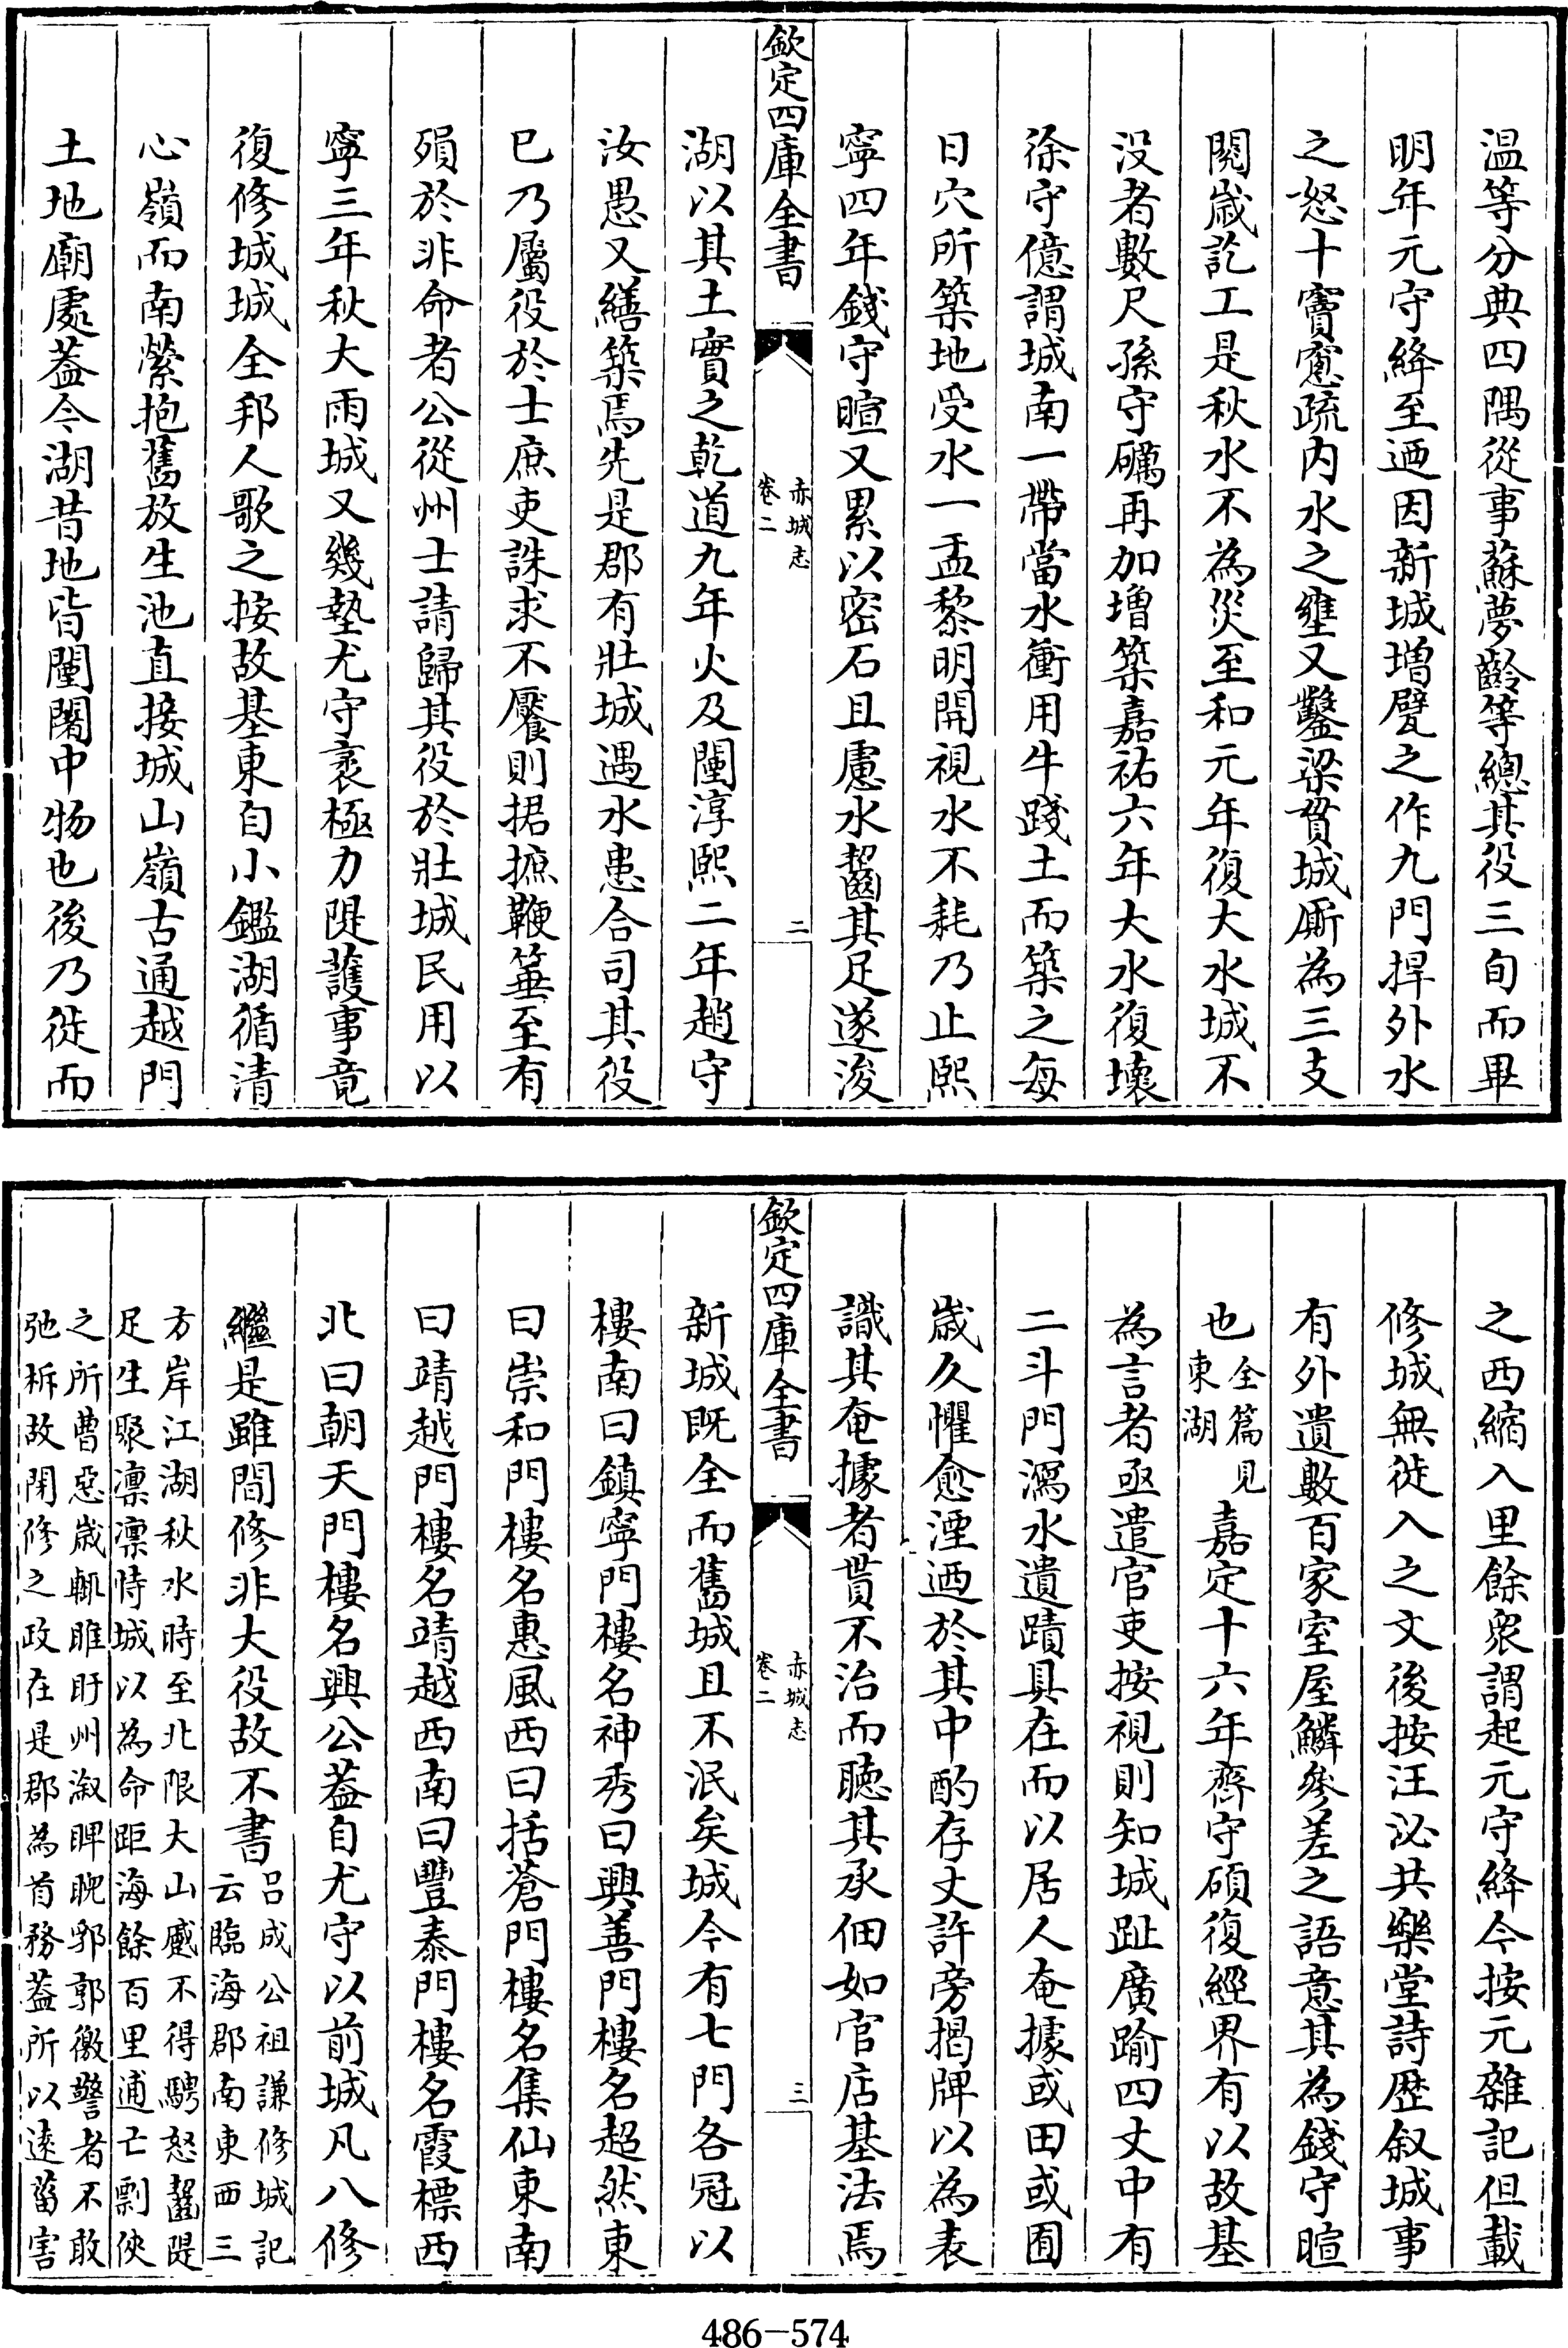 温等分典四隅從事蘇夢齡等總其役三旬而畢
明年元守絳至迺因新城増甓之作九門捍外水
之怒十竇窻疏内水之壅又鑿梁貫城厮為三支
閱歳訖工是秋水不為災至和元年復大水城不
没者數尺孫守礪再加増築嘉祐六年大水復壞
徐守億謂城南一帶當水衝用牛踐土而築之每
日穴所築地受水一盂黎明開視水不耗乃止熙
寧四年錢守暄又累以密石且慮水齧其足遂浚
欽定四庫全書
赤城志
卷二
二
湖以其土實之乾道九年火及闉淳熙二年趙守
汝愚又繕築焉先是郡有壯城遇水患合司其役
已乃屬役於士庶吏誅求不饜則捃摭鞭箠至有
殞於非命者公從州士請歸其役於壯城民用以
寧三年秋大雨城又幾墊尤守袤極力隄護事竟
復修城城全邦人歌之按故基東自小鑑湖循清
心嶺而南縈抱舊放生池直接城山嶺古通越門
土地廟處葢今湖昔地皆闉闍中物也後乃徙而
之西縮入里餘衆謂起元守絳今按元雜記但載
修城無徙入之文後按汪泌共樂堂詩歴叙城事
有外遺數百家室屋鱗參差之語意其為錢守暄
也
全篇見
東湖
嘉定十六年齊守碩復經界有以故基
為言者亟遣官吏按視則知城趾廣踰四丈中有
二斗門瀉水遺蹟具在而以居人奄據或田或囿
歳久懼愈湮迺於其中酌存丈許旁揭牌以為表
識其奄據者貰不治而聽其承佃如官店基法焉
欽定四庫全書
赤城志
卷二
三
新城既全而舊城且不泯矣城今有七門各冠以
樓南曰鎮寧門樓名神秀曰興善門樓名超然東
曰崇和門樓名惠風西曰括蒼門樓名集仙東南
曰靖越門樓名靖越西南曰豐泰門樓名霞標西
北曰朝天門樓名興公葢自尤守以前城凡八修
繼是雖間修非大役故不書
吕成公祖謙修城記
云臨海郡南東西三
方岸江湖秋水時至北限大山蹙不得騁怒齧隄
足生聚凛凛恃城以為命距海餘百里逋亡剽俠
之所曹惡歳輒睢盱州溆睥睨郛郭徼警者不敢
弛柝故閑修之政在是郡為首務葢所以逺菑害
486－574